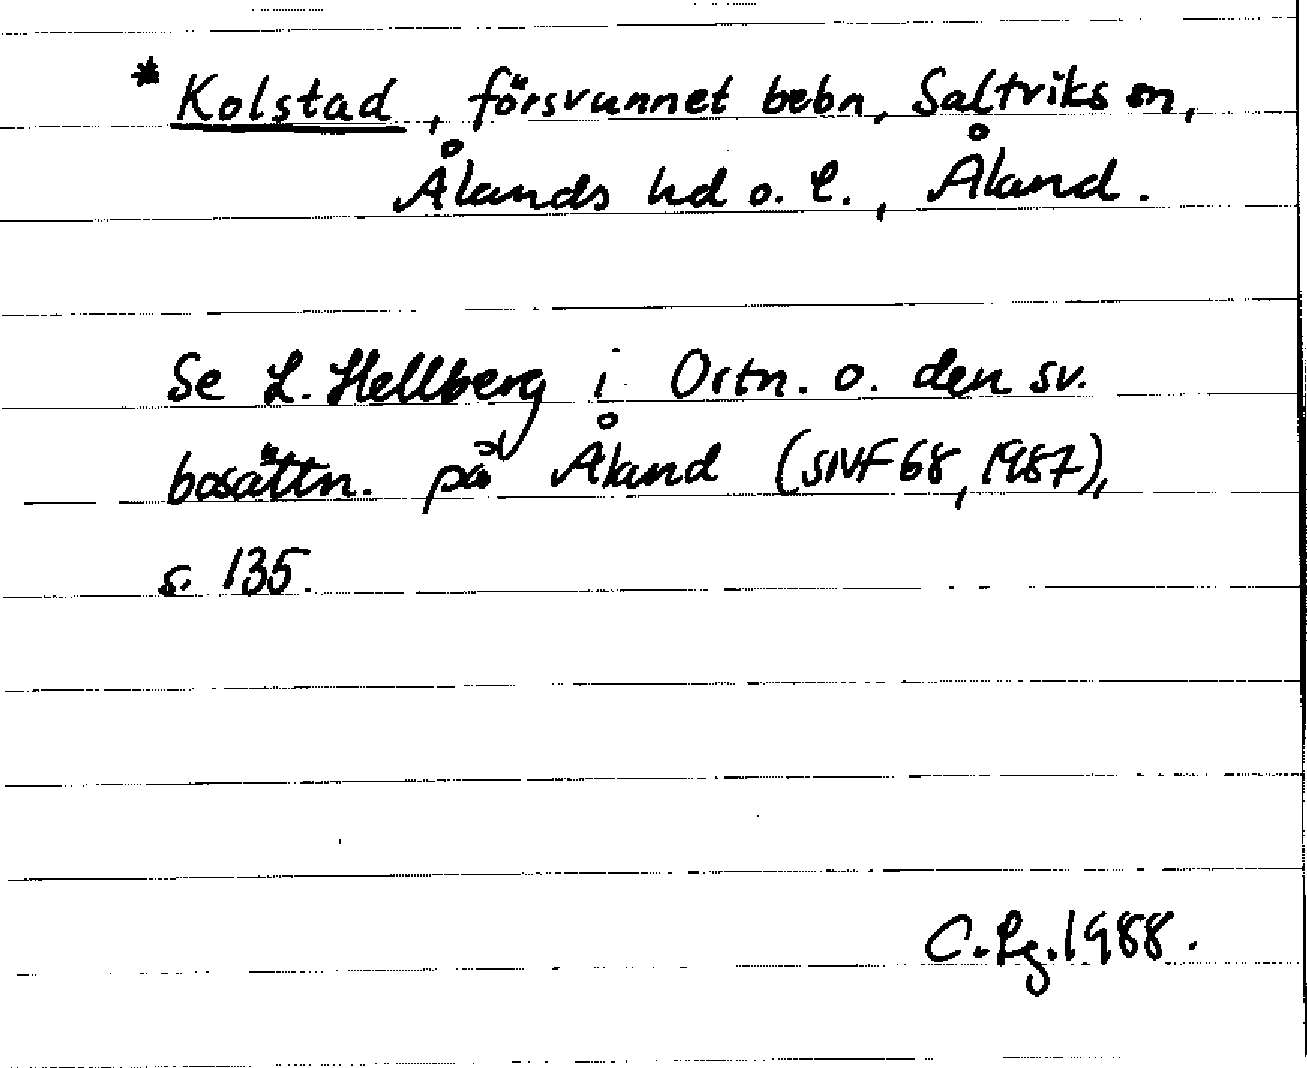 * Kolstad, försvunnet bebn, Saltviks sn,
Ålands hd o. l., Åland.
Se L. Hellberg i Ortn. o. den sv.
bosättn. på Åland (SNF 68, 1987),
s. 135.
C. Lg. 1988.